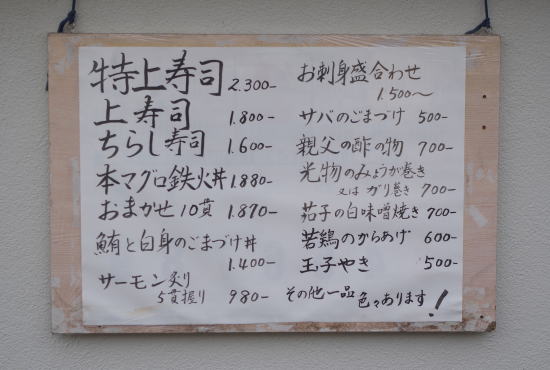 特上寿司 2.300-
上寿司 1.800-
ちらし寿司 1.600-
本マグロ鉄火丼 1.880-
おまかせ10貫 1.870-
鮪と白身のごまづけ丼
1.400-
サーモン炙り
5貫握り 980-
お刺身盛合わせ
1.500〜
サバのごまづけ 500-
親父の酢の物 700-
光物のみょうが巻き
又は ガリ巻き 700-
茄子の白味噌焼き 700-
若鶏のからあげ 600-
玉子やき 500-
その他一品 色々あります!